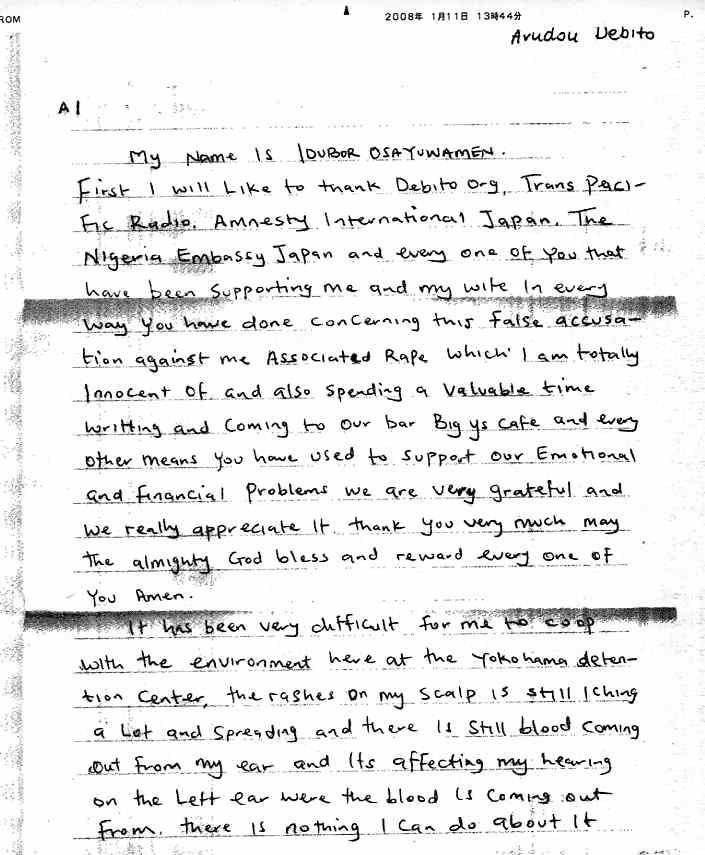 ROM 2008年 1月11日 13時44分 P.
Arudou Debito
A1
My Name Is IDUBOR OSAYUWAMEN.
First I will Like to thank Debito Org, Trans Paci-
Fic Radio. Amnesty International Japan. The
Nigeria Embassy Japan and every one of you that
have been Supporting me and my wife In every
Way You have done Concerning this false accusa-
tion against me Associated Rape Which I am totally
Innocent Of and also Spending a Valuable time
Writting and Coming to Our bar Big ys Cafe and every
Other means You have used to Support our Emotional
and financial Problems we are very grateful and
We really appreciate It thank You very much may
The almighty God bless and reward every one of
You Amen.
It has been very difficult for me to coop
With the environment here at the Yokohama deten-
tion Center, the rashes on my Scalp is still Iching
a Lot and Spreading and there Is Still blood Coming
Out From my ear and Its affecting my hearing
on the Left ear were the blood Is Coming out
From. there Is nothing I Can do about It